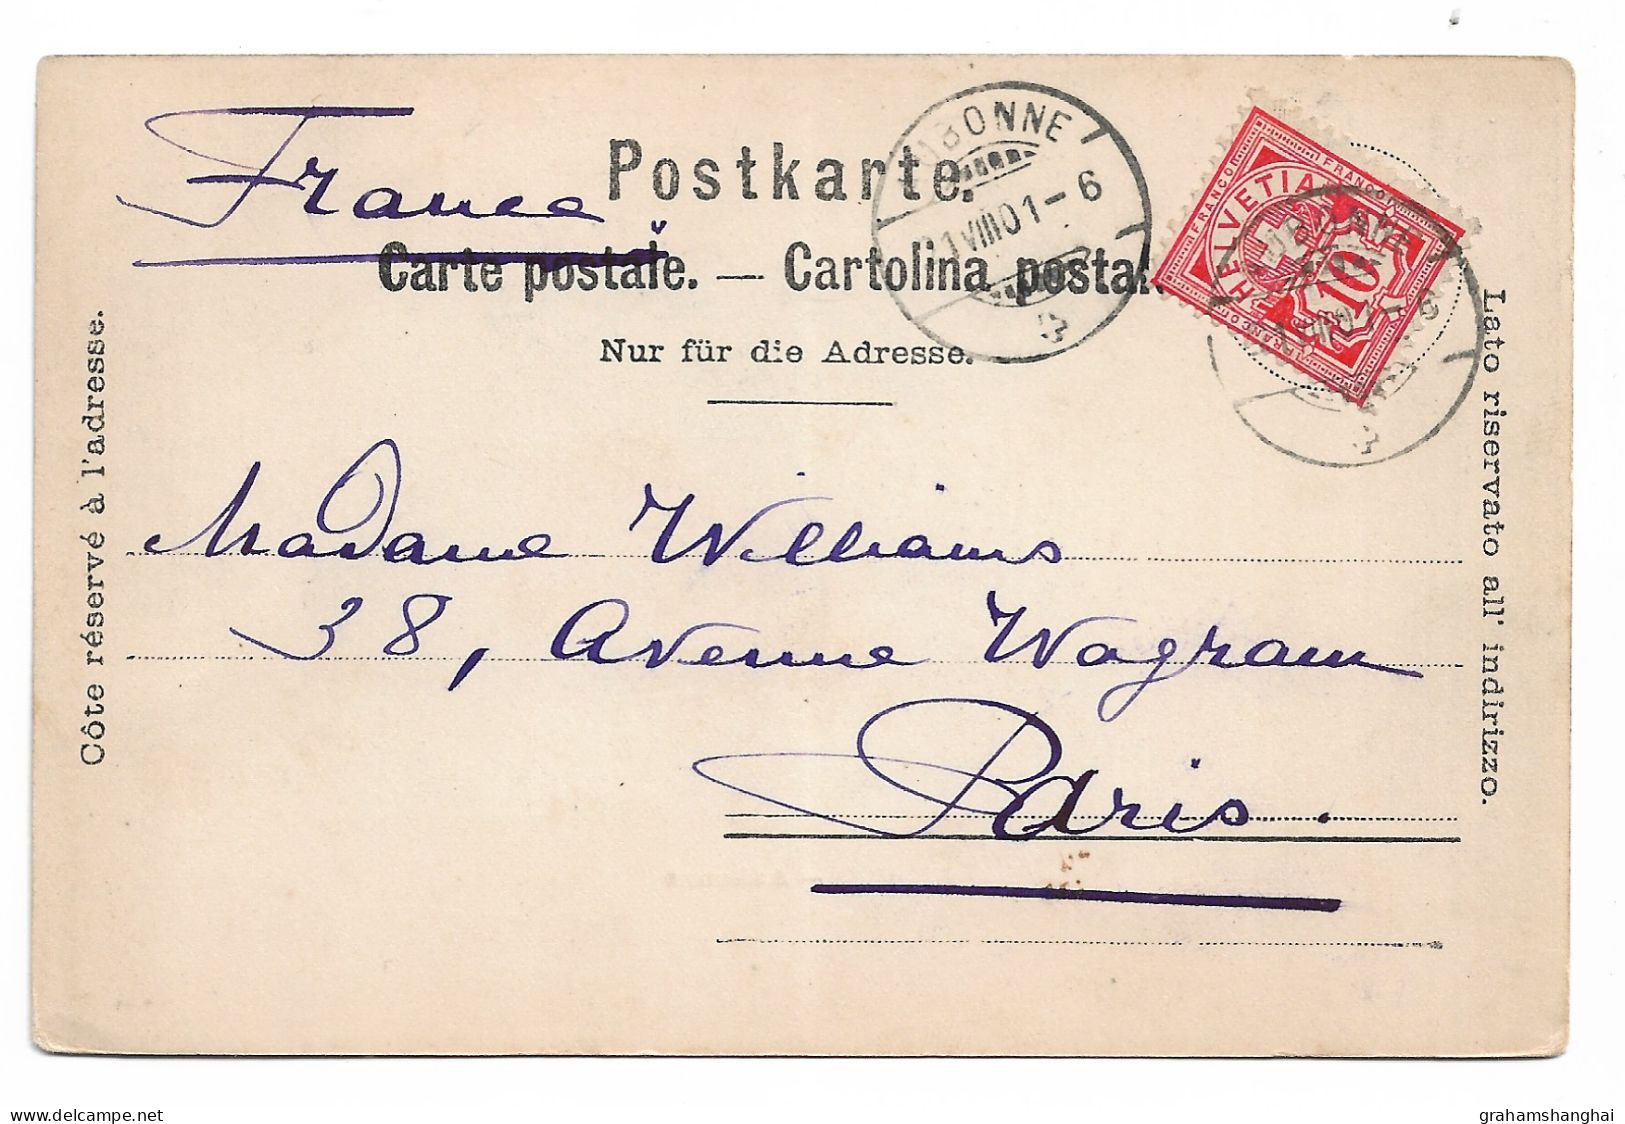 France
Postkarte.
Carte postale. — Cartolina postal
Nur für die Adresse.
UBONNE
1 VIII 01 – 6
FRANCO
FRANCO
HELVETIA
10
Côte réservé à l'adresse.
Lato riservato all' indirizzo.
Madame Williams
38, Avenue Wagram
Paris.
www.delcampe.net
grahamshanghai